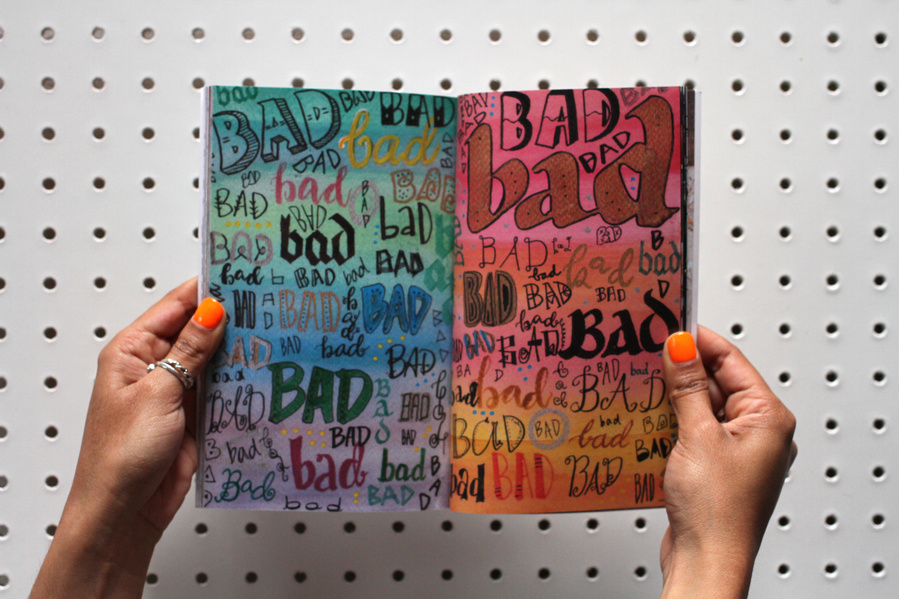 bad
BAD BAD BAD
bad
BAD BAD
bad BAD
BAD BAD
BAD BAD
bad bAD
BAD
bad b BAD bad BAD
BAD BAD BAD
bad
BAD BAD bad
BAD
bad
BAD BAD BAD
BAD
bad BAD BAD
bad bad
Bad BAD
bad
BAD
BAD
bad
BAD
BAD
BAD bad
bad
BAD bad
BAD BAD BAD
BAD BAD Bad
BAD
BAD bad
bad BAD
BAD BAD bad
bad BAD
bad BAD BAD BAD